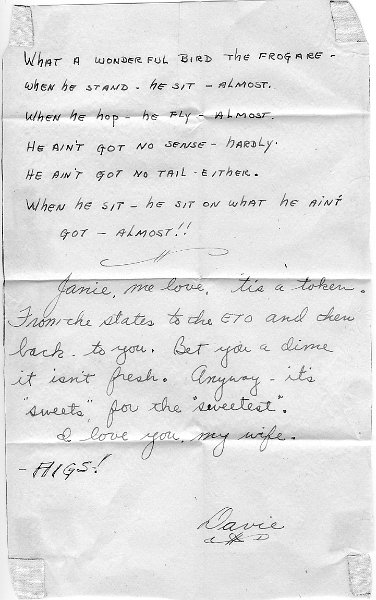 WHAT A WONDERFUL BIRD THE FROG ARE -
WHEN HE STAND - HE SIT - ALMOST.
WHEN HE HOP - HE FLY - ALMOST.
HE AIN'T GOT NO SENSE - HARDLY.
HE AIN'T GOT NO TAIL - EITHER.
WHEN HE SIT - HE SIT ON WHAT HE AIN'T
GOT - ALMOST!!
Janie, me love, 'tis a token.
From the states to the ETO and then
back - to you. Bet you a dime
it isn't fresh. Anyway - it's
"sweets" for the "sweetest".
I love you, my wife.
- HIGS!
Davie